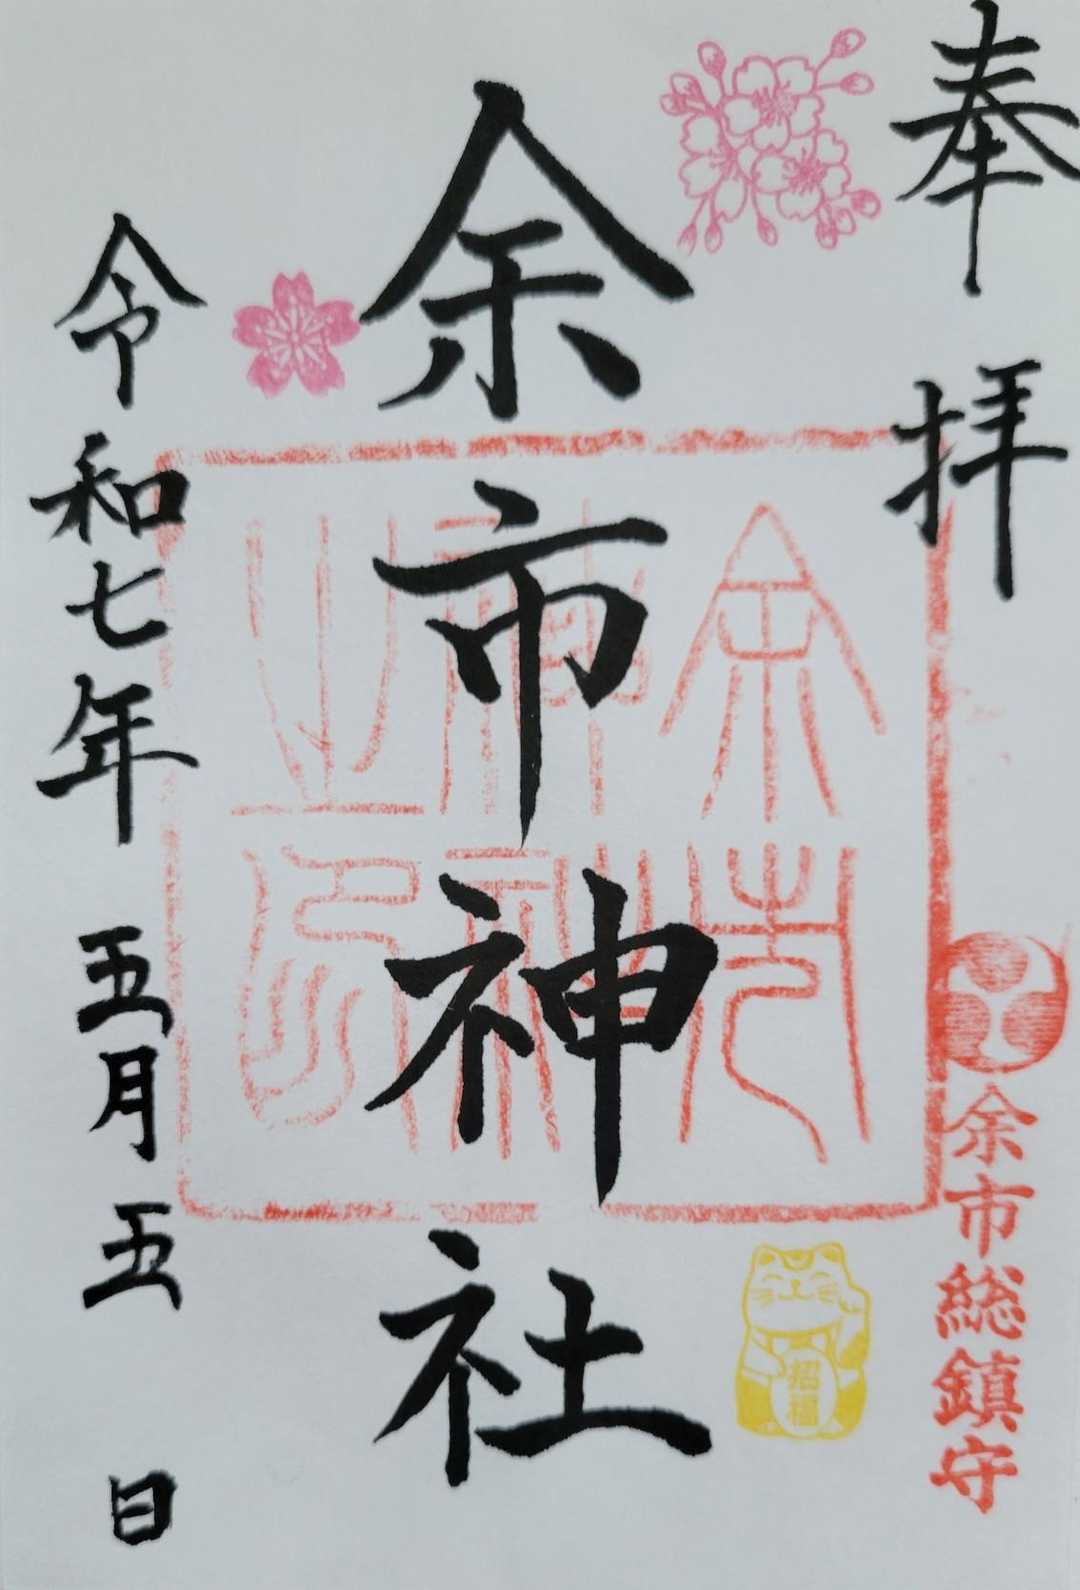 奉拝
余市総鎮守
余市神社
余市
神社
之印
招福
令和七年五月五日